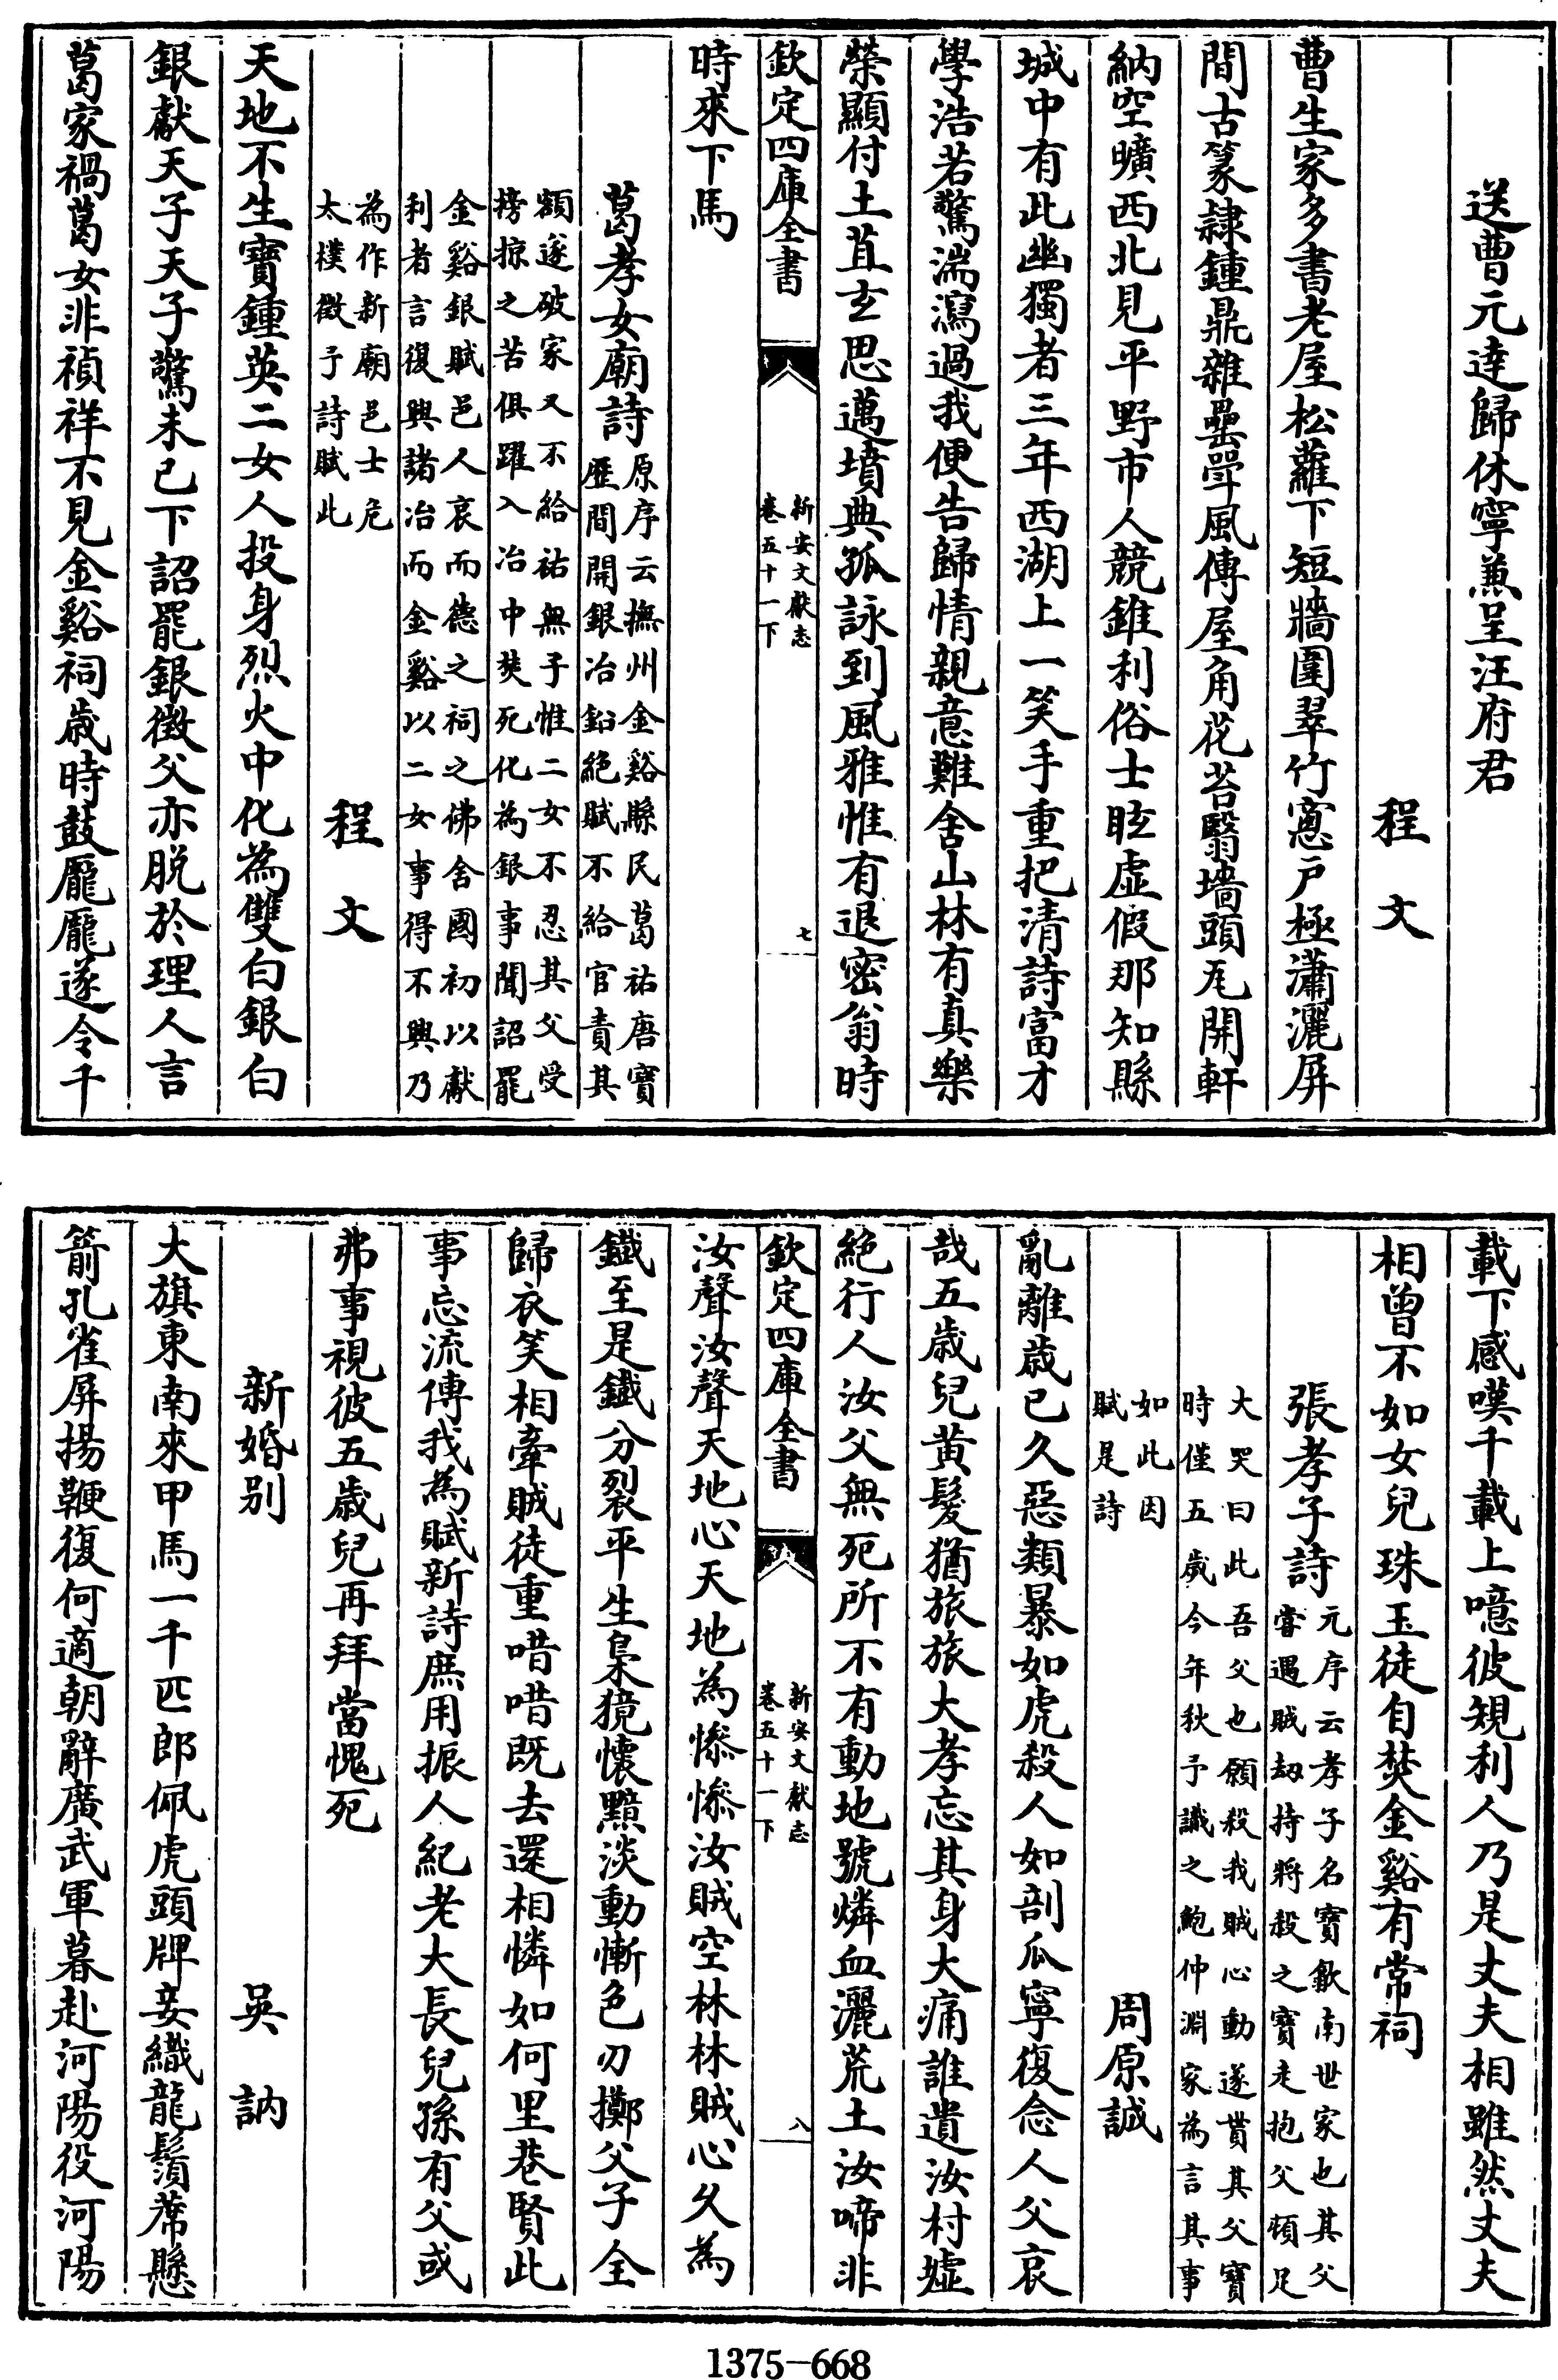 送曹元達歸休寧兼呈汪府君
程文
曹生家多書老屋松蘿下短牆圍翠竹窻戶極瀟灑屏
間古篆隷鍾鼎雜罍斝風傳屋角花苔翳墻頭瓦開軒
納空曠西北見平野市人競錐利俗士眩虛假那知縣
城中有此幽獨者三年西湖上一笑手重把清詩富才
學浩若驚湍瀉過我便告歸情親意難舍山林有真樂
榮顯付土苴玄思邁墳典孤詠到風雅惟有退密翁時
欽定四庫全書
新安文獻志
卷五十一下
七
時來下馬
葛孝女廟詩
原序云撫州金谿縣民葛祐唐寶
歴間開銀冶鉛絶賦不給官責其
額遂破家又不給祐無子惟二女不忍其父受
搒掠之苦俱躍入冶中焚死化為銀事聞詔罷
金谿銀賦邑人哀而德之祠之佛舍國初以獻
利者言復興諸冶而金谿以二女事得不興乃
為作新廟邑士危
太樸徵予詩賦此
程文
天地不生寶鍾英二女人投身烈火中化為雙白銀白
銀獻天子天子驚未已下詔罷銀徴父亦脱於理人言
葛家禍葛女非禎祥不見金谿祠歳時鼓龎龎遂令千
載下感嘆千載上噫彼規利人乃是丈夫相雖然丈夫
相曾不如女兒珠玉徒自焚金谿有常祠
張孝子詩
元序云孝子名寶歙南世家也其父
嘗遇賊刼持將殺之寶走抱父頓足
大哭曰此吾父也願殺我賊心動遂貰其父寶
時僅五歲今年秋予識之鮑仲淵家為言其事
如此因
賦是詩
周原誠
亂離歳已久惡類暴如虎殺人如剖瓜寧復念人父哀
哉五歳兒黃髮猶旅旅大孝忘其身大痛誰遺汝村墟
絶行人汝父無死所不有動地號燐血灑荒土汝啼非
欽定四庫全書
新安文獻志
卷五十一下
八
汝聲汝聲天地心天地為慘慘汝賊空林林賊心久為
鐵至是鐵分裂平生梟獍懷黯淡動慚色刃擲父子全
歸衣笑相牽賊徒重唶唶既去還相憐如何里巷賢此
事忘流傳我為賦新詩庶用振人紀老大長兒孫有父或
弗事視彼五歲兒再拜當愧死
新婚别
吳訥
大旗東南來甲馬一千匹郎佩虎頭牌妾織龍鬚席懸
箭孔雀屏揚鞭復何適朝辭廣武軍暮赴河陽役河陽
1375—668